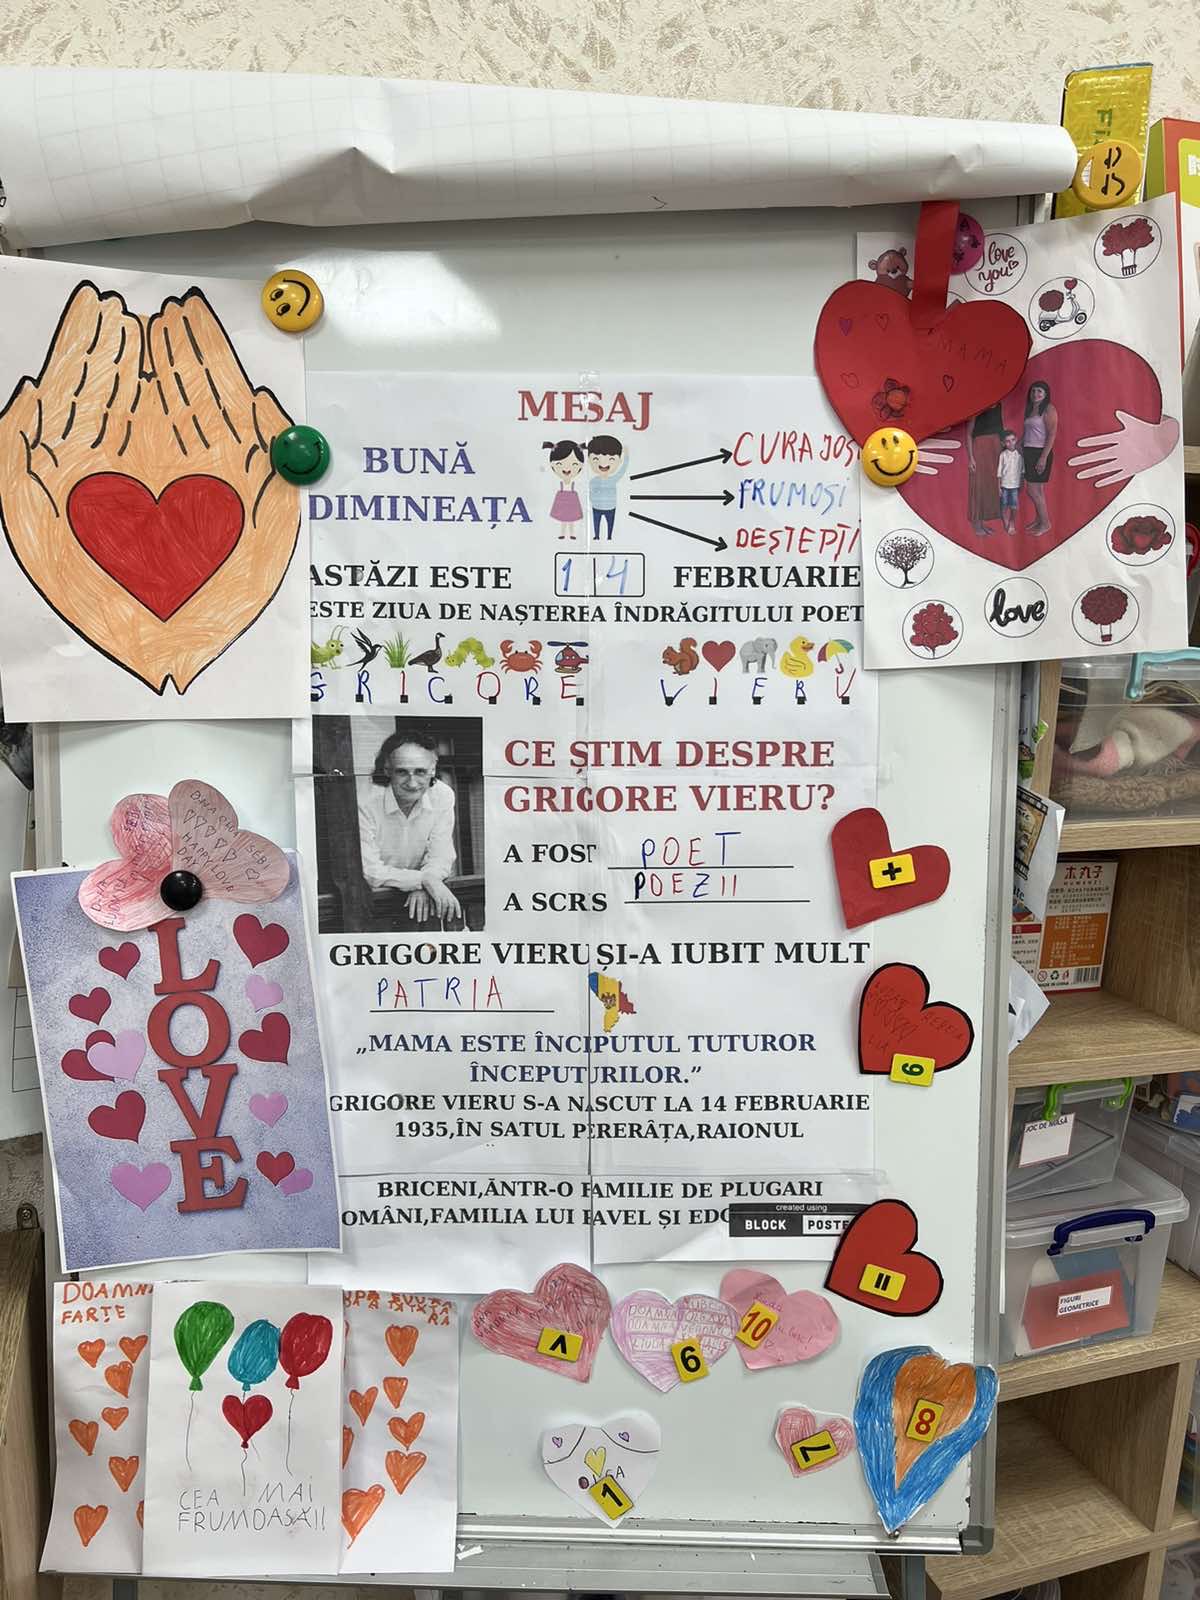 I love you
MAMA
MESAJ
BUNĂ DIMINEAȚA
CURAJOȘI
FRUMOȘI
DEȘTEPȚI
ASTĂZI ESTE 14 FEBRUARIE
ESTE ZIUA DE NAȘTEREA ÎNDRĂGITULUI POET
GRIGORE VIERU
love
CE ȘTIM DESPRE
GRIGORE VIERU?
A FOST POET
A SCRIS POEZII
GRIGORE VIERU ȘI-A IUBIT MULT
PATRIA
„MAMA ESTE ÎNCEPUTUL TUTUROR
ÎNCEPUTURILOR.”
GRIGORE VIERU S-A NĂSCUT LA 14 FEBRUARIE
1935,ÎN SATUL PERERÂTA,RAIONUL
BRICENI,ÂNTR-O FAMILIE DE PLUGARI
ROMÂNI,FAMILIA LUI PAVEL ȘI
created using
BLOCK POSTE
HAPPY LOVE
DAY
LOVE
+
6
=
<
6
10
7
8
1
DOAMN
FARTE
CEA MAI
FRUMOASĂ!!
JOC DE MASĂ
FIGURI
GEOMETRICE
木丸子
MADE IN CHINA